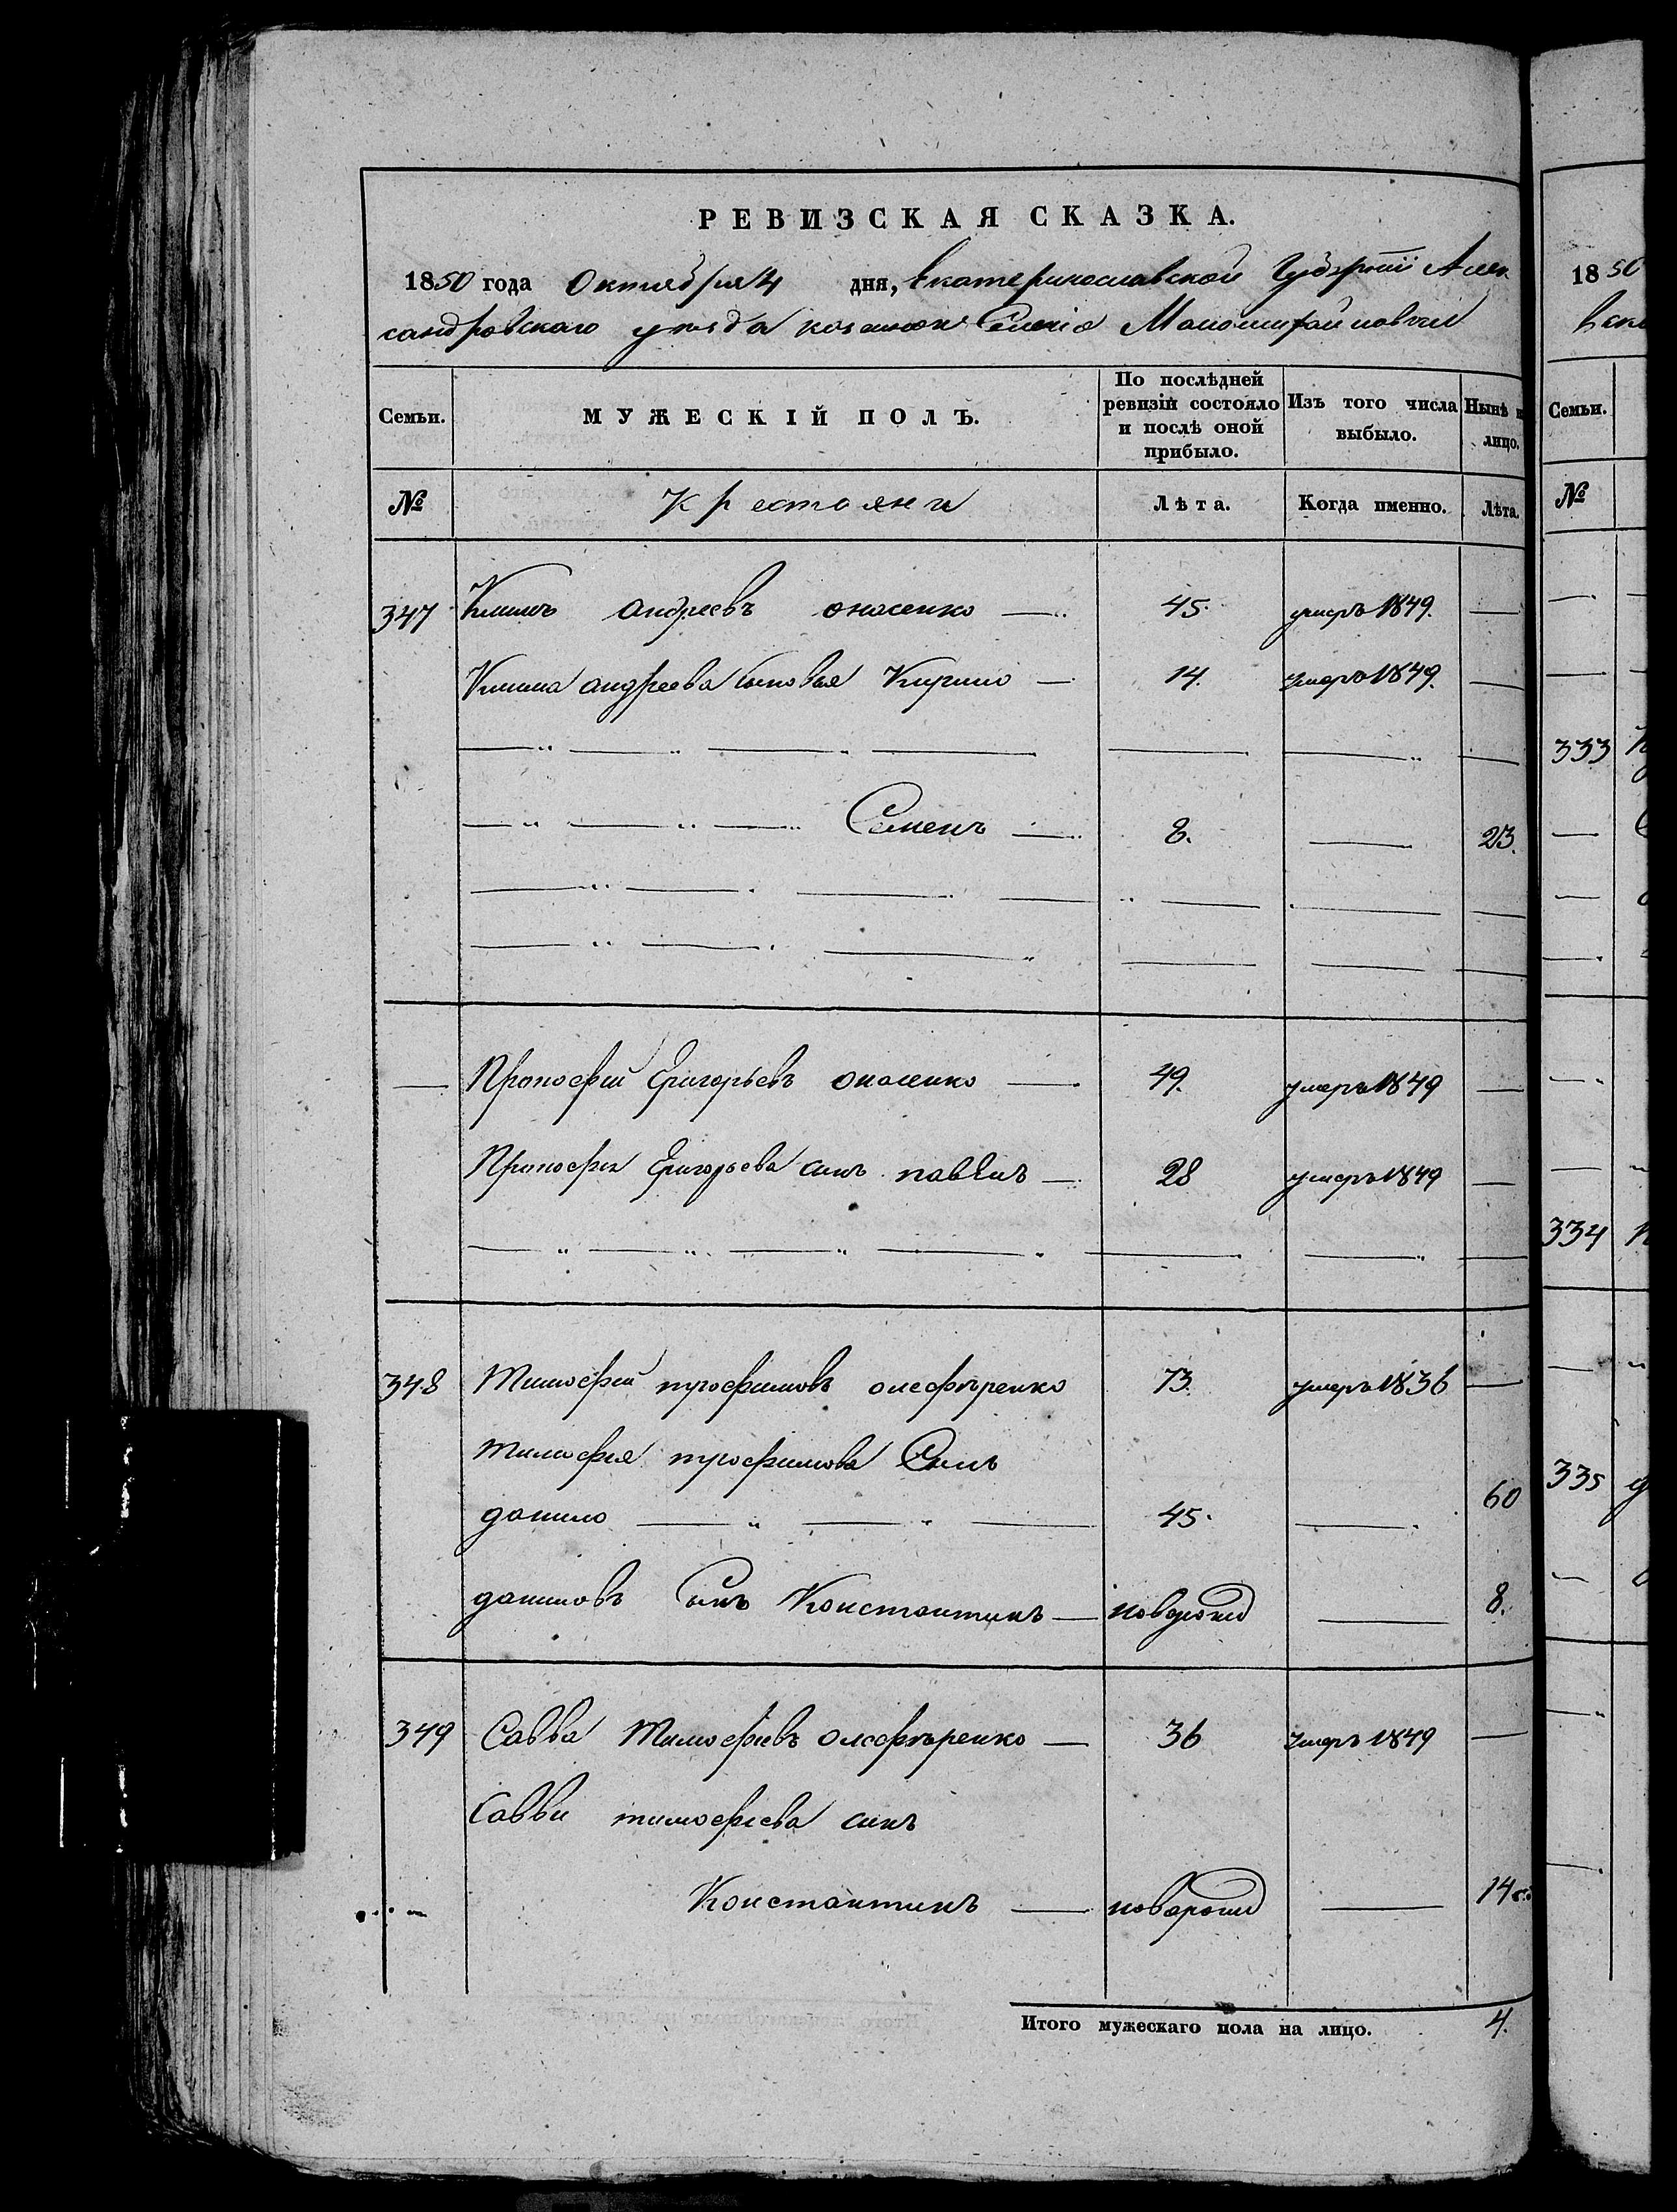 РЕВИЗСКАЯ СКАЗКА.
1850 года Октября 4 дня, Екатеринославской Губернии Алек
сандровского уезда казенного Селенія
Семьи. МУЖЕСКІЙ ПОЛЪ. По послѣдней ревизіи состояло и послѣ оной прибыло. Изъ того числа выбыло. Нынѣ на лицо.
№ Крестьяни Лѣта. Когда именно. Лѣта.
347 Климъ андреевъ онасенко — 45. умеръ 1849. —
Клима андреева сыновья Кирило — 14. умеръ 1849. —
Семенъ — 8. — 23.
— Прокофий Григорьевъ онасенко — 49. умеръ 1849 —
Прокофия Григорьева синъ павелъ — 28 умеръ 1849 —
348 Тимофей трофимовъ олефѣренко 73. умеръ 1836 —
тимофея трофимова Синъ
данило — 45. — 60
даниловъ Синъ Константинъ — новорожд — 8.
349 Савва Тимофѣевъ олефѣренко — 36 умеръ 1849 —
Савви тимофѣева синъ
Константинъ — новорожд — 14
Итого мужескаго пола на лицо. 4.
1850
Семьи.
№
333
334
335